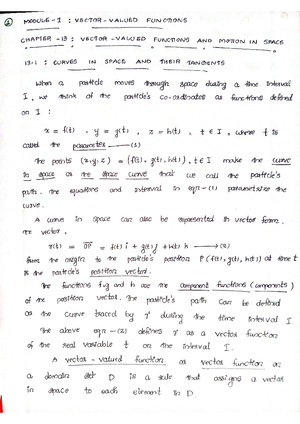 MODULE-1 : VECTOR-VALUED FUNCTIONS
CHAPTER -13 : VECTOR-VALUED FUNCTIONS AND MOTION IN SPACE
13.1 : CURVES IN SPACE AND THEIR TANGENTS
When a particle moves through space during a time interval
I, we think of the particle's co-ordinates as functions defined
on I :
x = f(t) , y = g(t) , z = h(t) , t ∈ I , where t is
called the parameter. ——(1)
The points (x,y,z) = (f(t), g(t), h(t)), t ∈ I make the curve
in space or the space curve that we call the particle's
path. The equations and interval in eqn-(1) parametrize the
curve.
A curve in space can also be represented in vector form.
The vector,
r(t) = OP = f(t)i + g(t)j + h(t)k ——→(2)
from the origin to the particle's position P(f(t), g(t), h(t)) at time t
is the particle's position vector.
The functions f,g and h are the component functions (components)
of the position vector. The particle's path can be defined
as the curve traced by r during the time interval I.
The above eqn-(2) defines r as a vector function
of the real variable t on the interval I.
A vector-valued function or vector function on
a domain set D is a rule that assigns a vector
in space to each element in D.